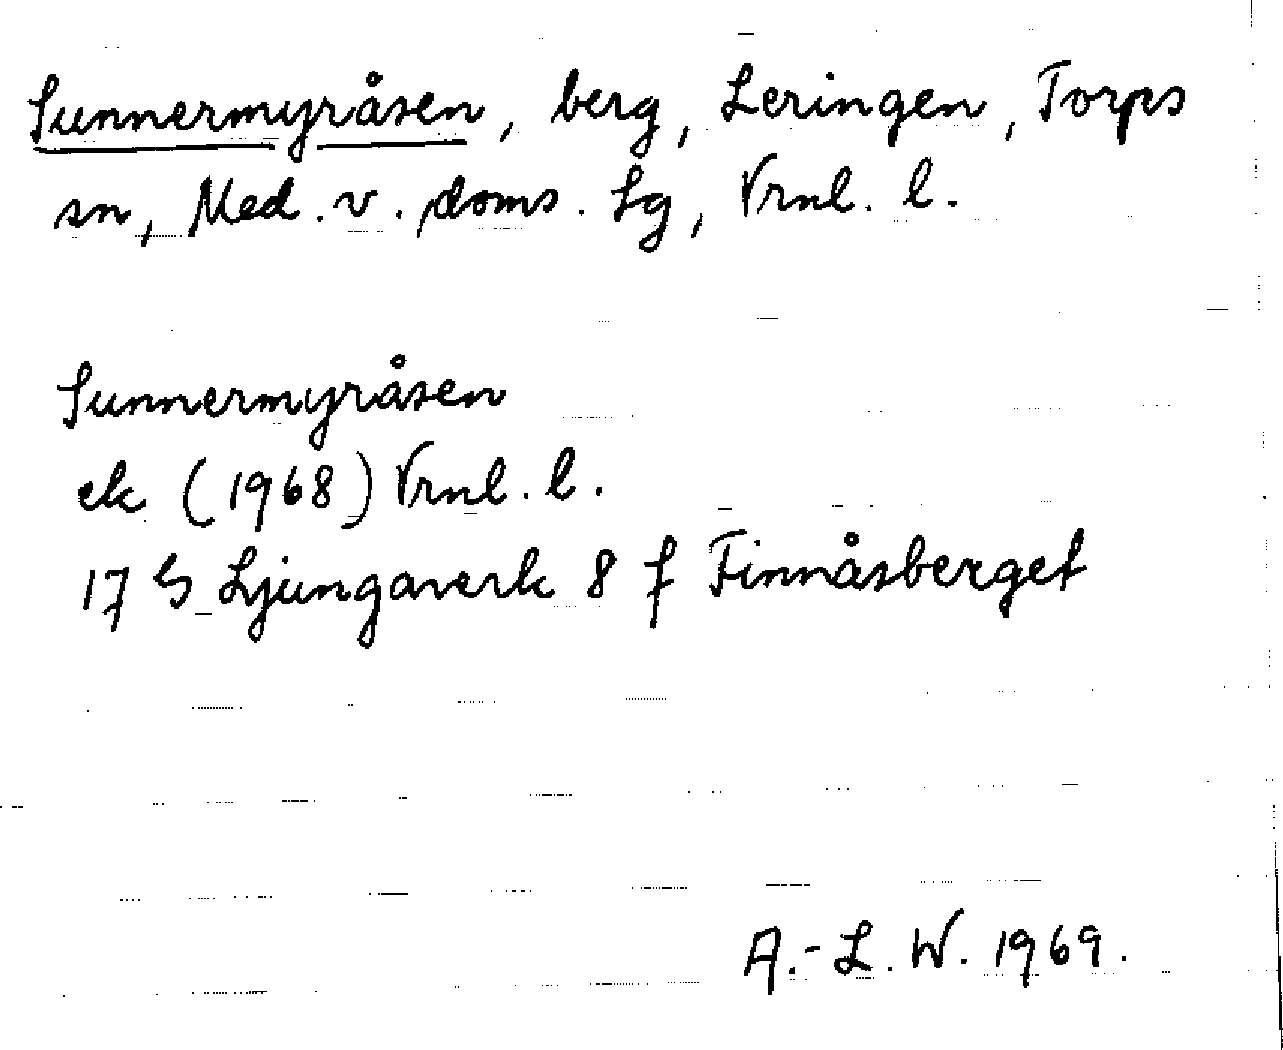 Sunnermyråsen, berg, Leringen, Torps
sn, Med. v. doms. Lg, Vrnl. l.
Sunnermyråsen
ek (1968) Vrnl. l.
17 G Ljungaverk 8 f Finnåsberget
A.-L. W. 1969.